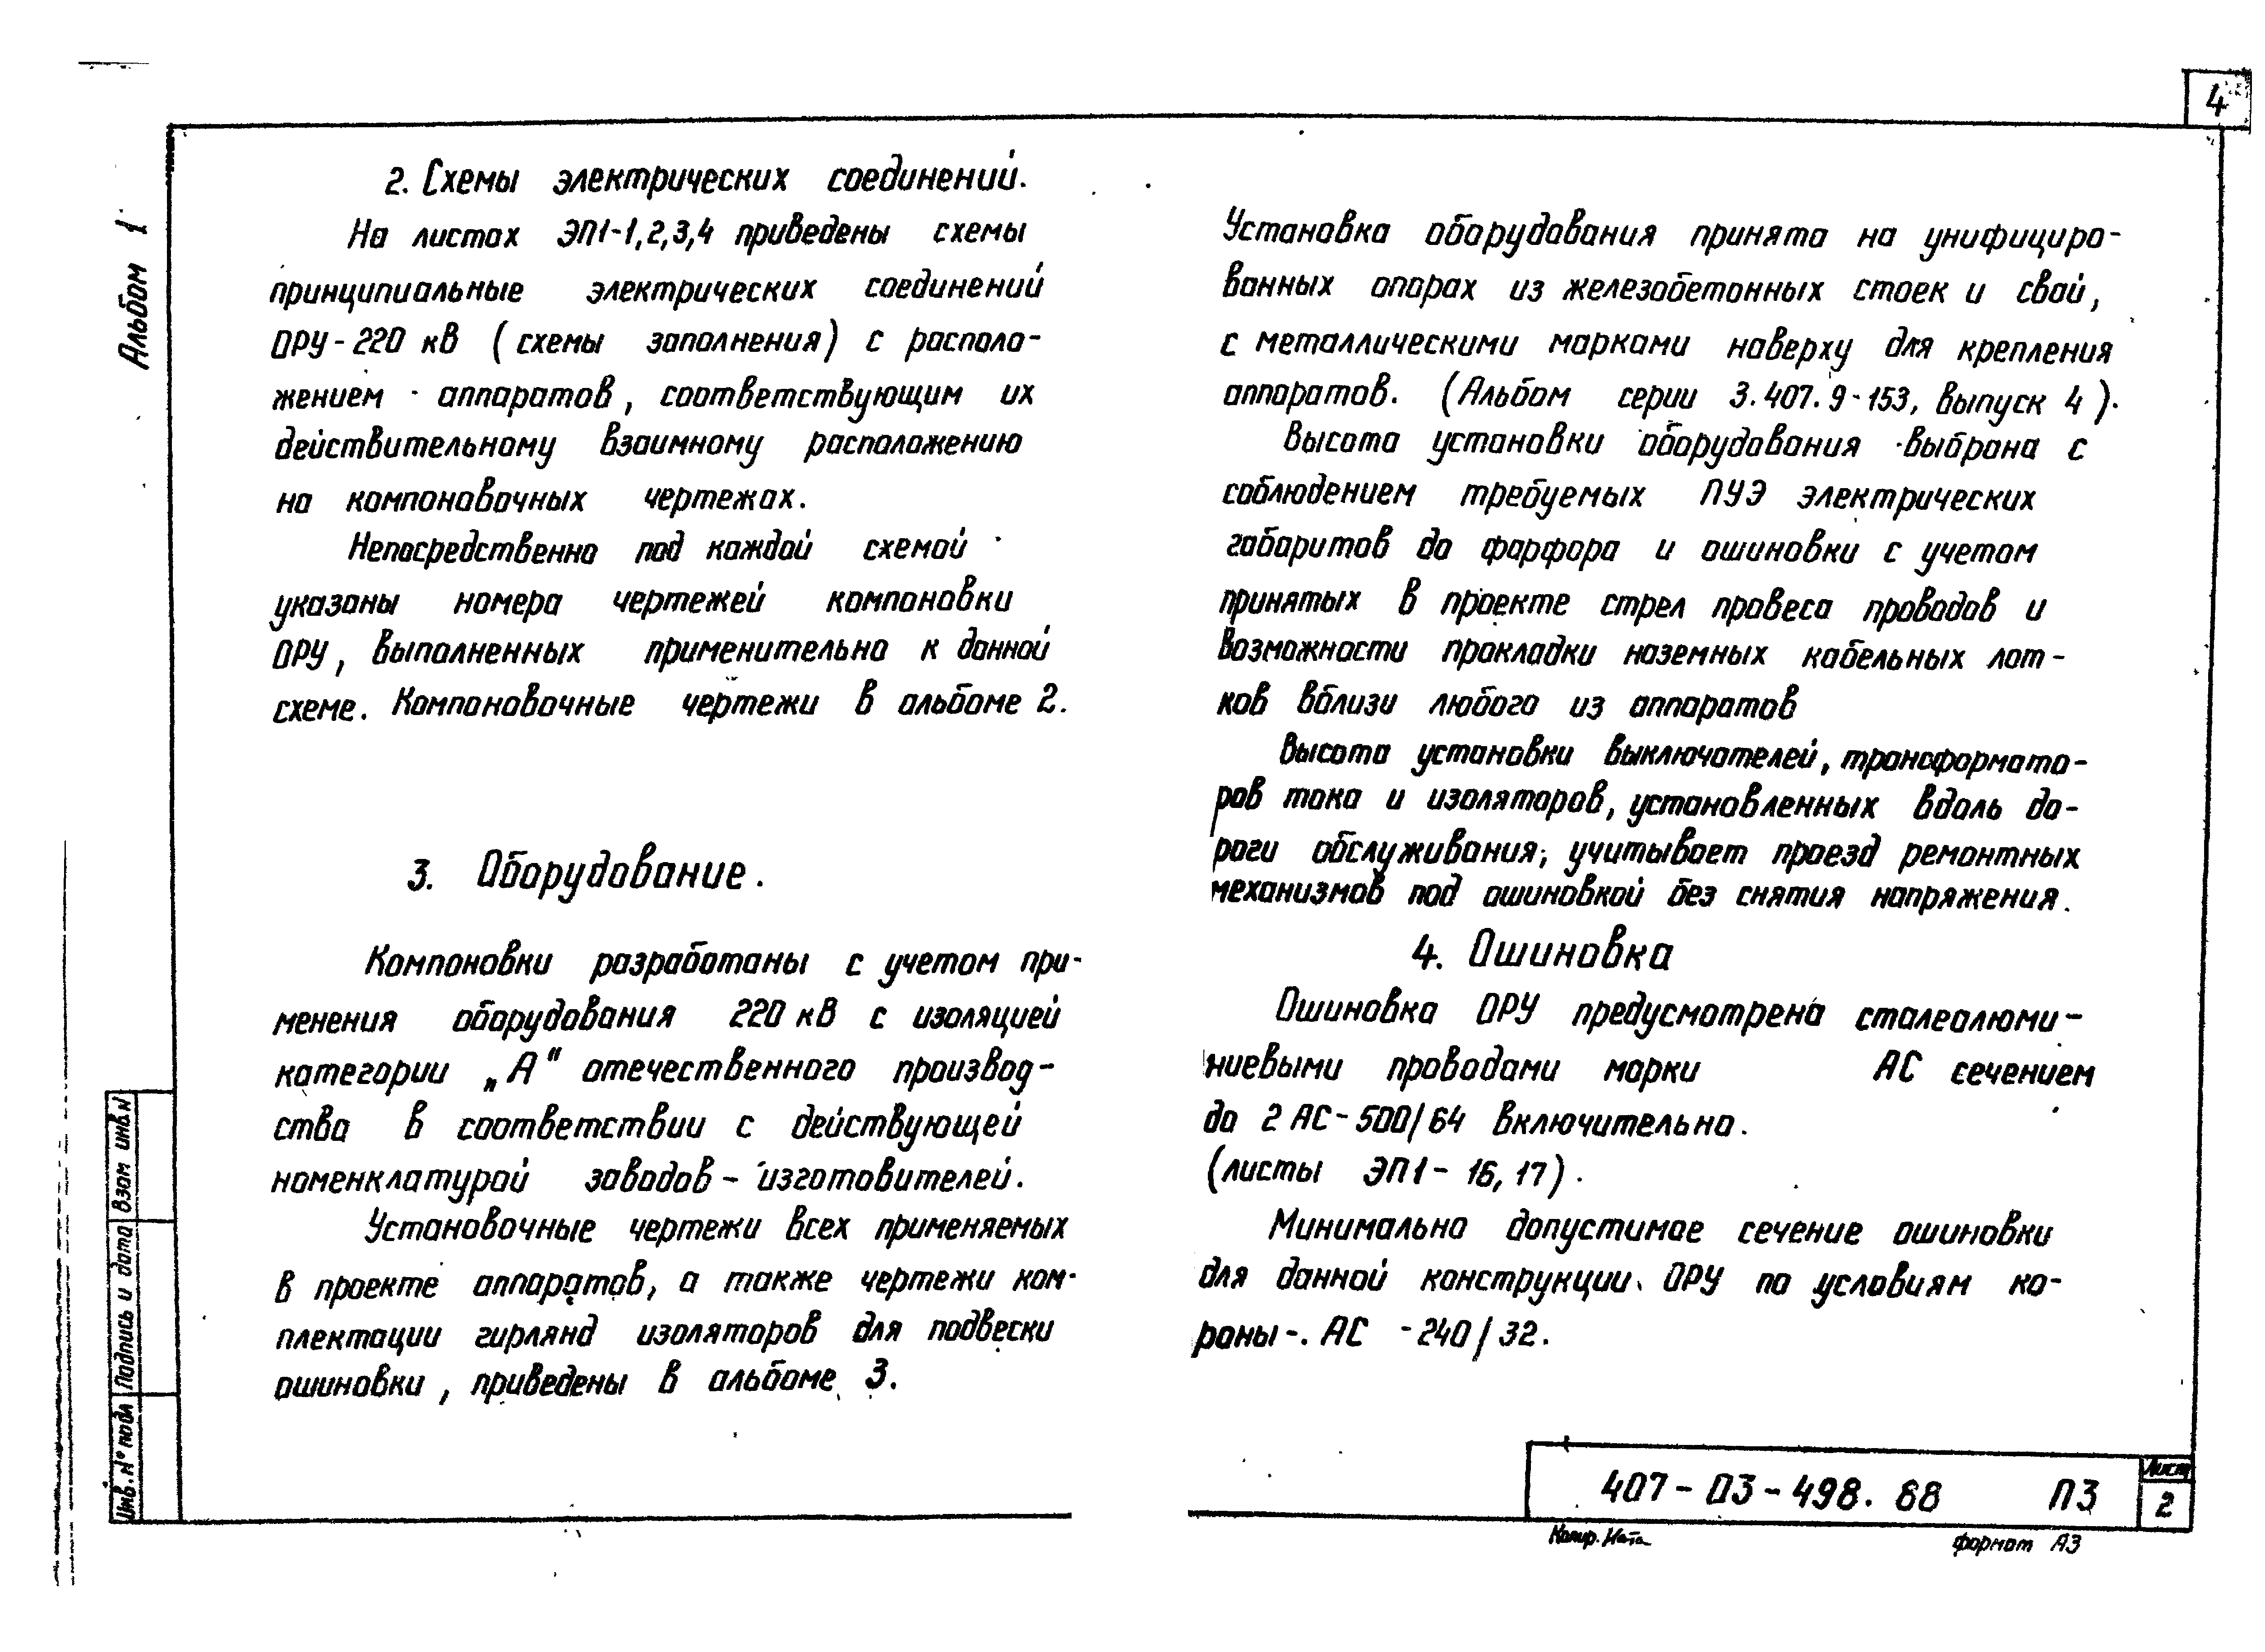 4
Альбом 1
2. Схемы электрических соединений.
На листах ЭП1-1,2,3,4 приведены схемы
принципиальные электрических соединений
ОРУ-220 кВ (схемы заполнения) с располо-
жением аппаратов, соответствующим их
действительному взаимному расположению
на компоновочных чертежах.
Непосредственно под каждой схемой
указаны номера чертежей компоновки
ОРУ, выполненных применительно к данной
схеме. Компоновочные чертежи в альбоме 2.
3. Оборудование.
Компоновки разработаны с учетом при-
менения оборудования 220 кВ с изоляцией
категории „А" отечественного производ-
ства в соответствии с действующей
номенклатурой заводов-изготовителей.
Установочные чертежи всех применяемых
в проекте аппаратов, а также чертежи ком-
плектации гирлянд изоляторов для подвески
ошиновки, приведены в альбоме 3.
Установка оборудования принята на унифициро-
ванных опорах из железобетонных стоек и свай,
с металлическими марками наверху для крепления
аппаратов. (Альбом серии 3.407.9-153, выпуск 4).
Высота установки оборудования выбрана с
соблюдением требуемых ПУЭ электрических
габаритов до фарфора и ошиновки с учетом
принятых в проекте стрел провеса проводов и
возможности прокладки наземных кабельных лот-
ков вблизи любого из аппаратов
Высота установки выключателей, трансформато-
ров тока и изоляторов, установленных вдоль до-
роги обслуживания, учитывает проезд ремонтных
механизмов под ошиновкой без снятия напряжения.
4. Ошиновка
Ошиновка ОРУ предусмотрена сталеалюми-
ниевыми проводами марки АС сечением
до 2 АС-500/64 включительно.
(листы ЭП1-16,17).
Минимально допустимое сечение ошиновки
для данной конструкции ОРУ по условиям ко-
роны-. АС -240/32.
Взам инв.N
Подпись и дата
Инв.N° подл
407-03-498.88 ПЗ
Лист
2
Копир.
формат А3